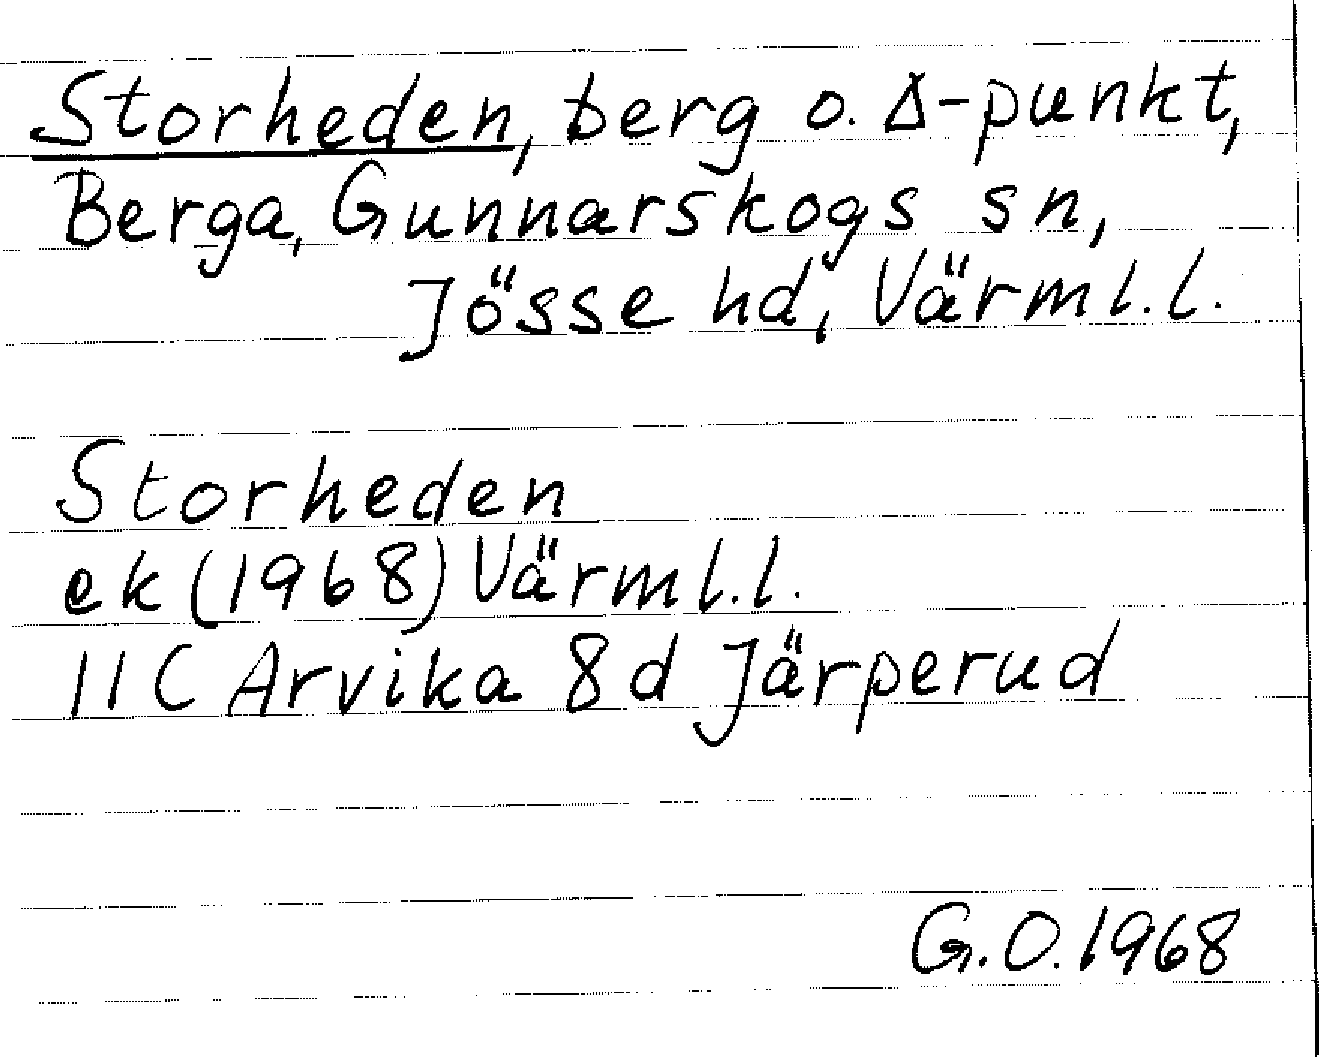 Storheden, berg o. Δ-punkt,
Berga, Gunnarskogs sn,
Jösse hd, Värml.l.
Storheden
ek (1968) Värml.l.
11C Arvika 8d Järperud
G.O. 1968